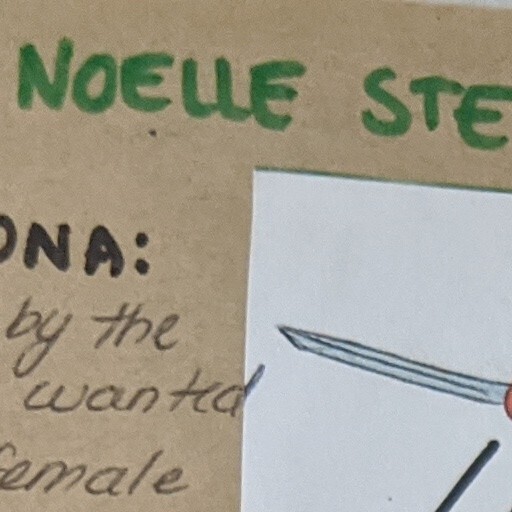 NOELLE STE
ONA:
by the
wanted
female